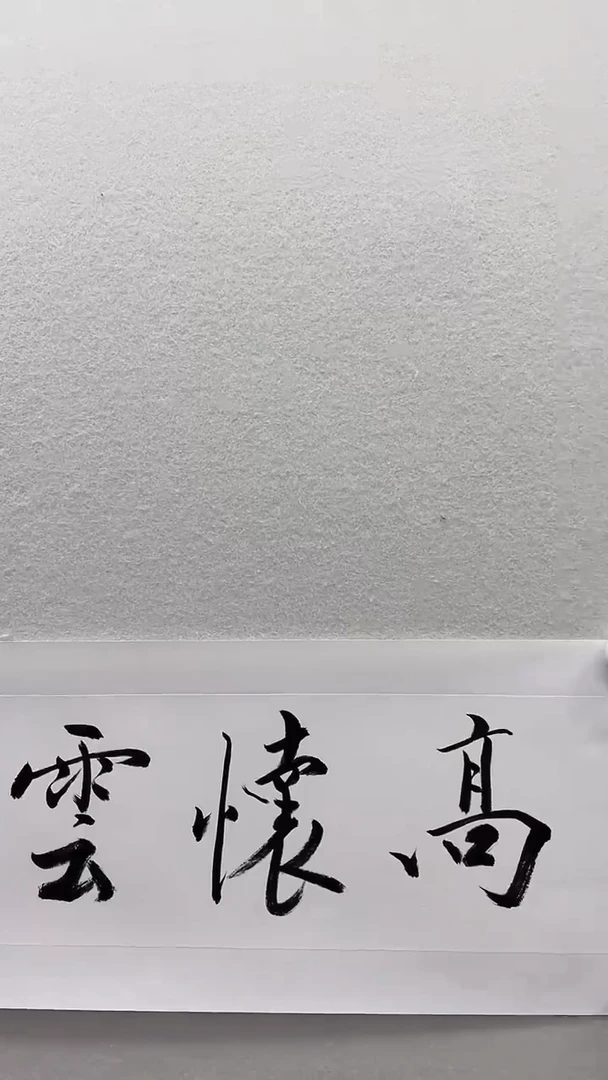 高懷雲